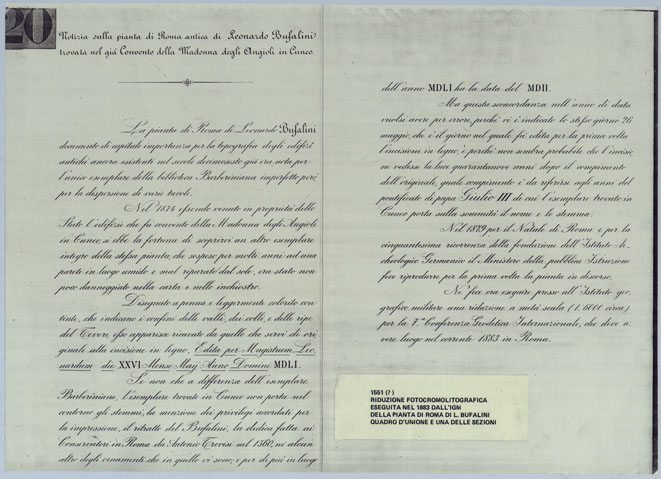 20
Notizia sulla pianta di Roma antica di Leonardo Bufalini
trovata nel già Convento della Madonna degli Angioli in Cuneo
La pianta di Roma di Leonardo Bufalini
documento di capitale importanza per la topografia degli edifizi
antichi ancora esistenti nel secolo decimosesto già era nota per
l'unico esemplare della biblioteca Barberiniana imperfetto però
per la dispersione di varii tavoli.
Nel 1874 essendo venuto in proprietà dello
Stato l'edifizio che fu convento della Madonna degli Angioli
in Cuneo, si ebbe la fortuna di scoprirvi un altro esemplare
integro della stessa pianta, che sospeso per molti anni ad una
parete in luogo umido e mal riparato dal sole, era stato non
poco danneggiato nella carta e nello inchiostro.
Disegnato a penna e leggermente colorito con
tinte, che indicano i confini delle valli, dei colli, e delle ripe
del Tevere esso apparisce ricavato da quello che servì di ori
ginale alla incisione in legno, Edita per Magistrum Leo
nardum die XXVI Mense Maij Anno Domini MDLI.
Se non che a differenza dell'esemplare
Barberiniano, l'esemplare trovato in Cuneo non porta nel
contorno gli stemmi, la menzione dei privilegi accordati per
la impressione, il ritratto del Bufalini, la dedica fatta ai
Conservatori in Roma da Antonio Trevisi nel 1560, nè alcun
altro degli ornamenti che in quello vi sono; e per di più in luogo
dell'anno MDLI ha la data del MDII.
Ma questa sconcordanza nell'anno di data
vuolsi avere per errore, perchè vi è indicato lo stesso giorno 26
maggio, che è il giorno nel quale fu edita per la prima volta
l'incisione in legno, e perchè non sembra probabile che l'incisio
ne vedesse la luce quarantanove anni dopo il compimento
dell'originale, quale compimento è da riferirsi agli anni del
pontificato di papa Giulio III di cui l'esemplare trovato in
Cuneo porta sulla sommità il nome e lo stemma.
Nel 1879 per il Natale di Roma e per la
cinquantesima ricorrenza della fondazione dell'Istituto Ar
cheologico Germanico il Ministero della pubblica Istruzione
fece riprodurre per la prima volta la pianta in discorso.
Ne fece ora eseguire presso all'Istituto geo
grafico militare una riduzione a metà scala (1.6000 circa)
per la 7.a Conferenza Geodetica Internazionale, che deve a
vere luogo nel corrente 1883 in Roma.
1551 (?)
RIDUZIONE FOTOCROMOLITOGRAFICA
ESEGUITA NEL 1883 DALL'IGM
DELLA PIANTA DI ROMA DI L. BUFALINI
QUADRO D'UNIONE E UNA DELLE SEZIONI